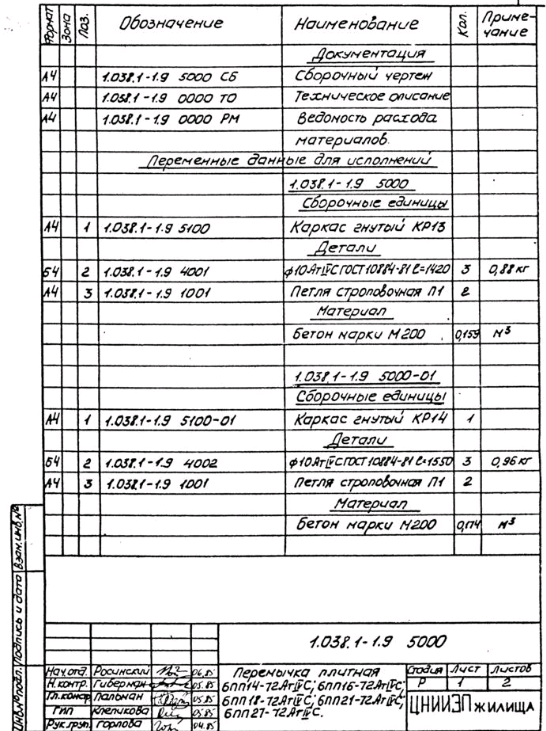 Формат Зона Поз. Обозначение Наименование Кол. Приме-
чание
Документация
А4 1.038.1-1.9 5000 СБ Сборочный чертеж
А4 1.038.1-1.9 0000 ТО Техническое описание
А4 1.038.1-1.9 0000 РМ Ведомость расхода
материалов.
Переменные данные для исполнений
1.038.1-1.9 5000
Сборочные единицы
А4 1 1.038.1-1.9 5100 Каркас гнутый КР13
Детали
Б4 2 1.038.1-1.9 4001 ф10АтIVС ГОСТ 10884-81 ℓ=1420 3 0,88 кг
А4 3 1.038.1-1.9 1001 Петля строповочная П1 2
Материал
Бетон марки М200 0,159 м³
1.038.1-1.9 5000-01
Сборочные единицы
А4 1 1.038.1-1.9 5100-01 Каркас гнутый КР14 1
Детали
Б4 2 1.038.1-1.9 4002 ф10АтIVС ГОСТ 10884-81 ℓ=1550 3 0,96 кг
А4 3 1.038.1-1.9 1001 Петля строповочная П1 2
Материал
Бетон марки М200 0,174 м³
Инв.№подл. Подпись и дата Взам.инв.№
1.038.1-1.9 5000
Нач.отд. Росинский 06.85
Н.контр. Гиберман 05.85
Гл.констр. Пальман 05.85
ГИП Клепикова 05.85
Рук.груп. Горлова 04.85
Перемычка плитная
6ПП14-72АтIVС; 6ПП16-72АтIVС;
6ПП18-72АтIVС; 6ПП21-72АтIVС;
6ПП27-72АтIVС.
Стадия Лист Листов
Р 1 2
ЦНИИЭП жилища